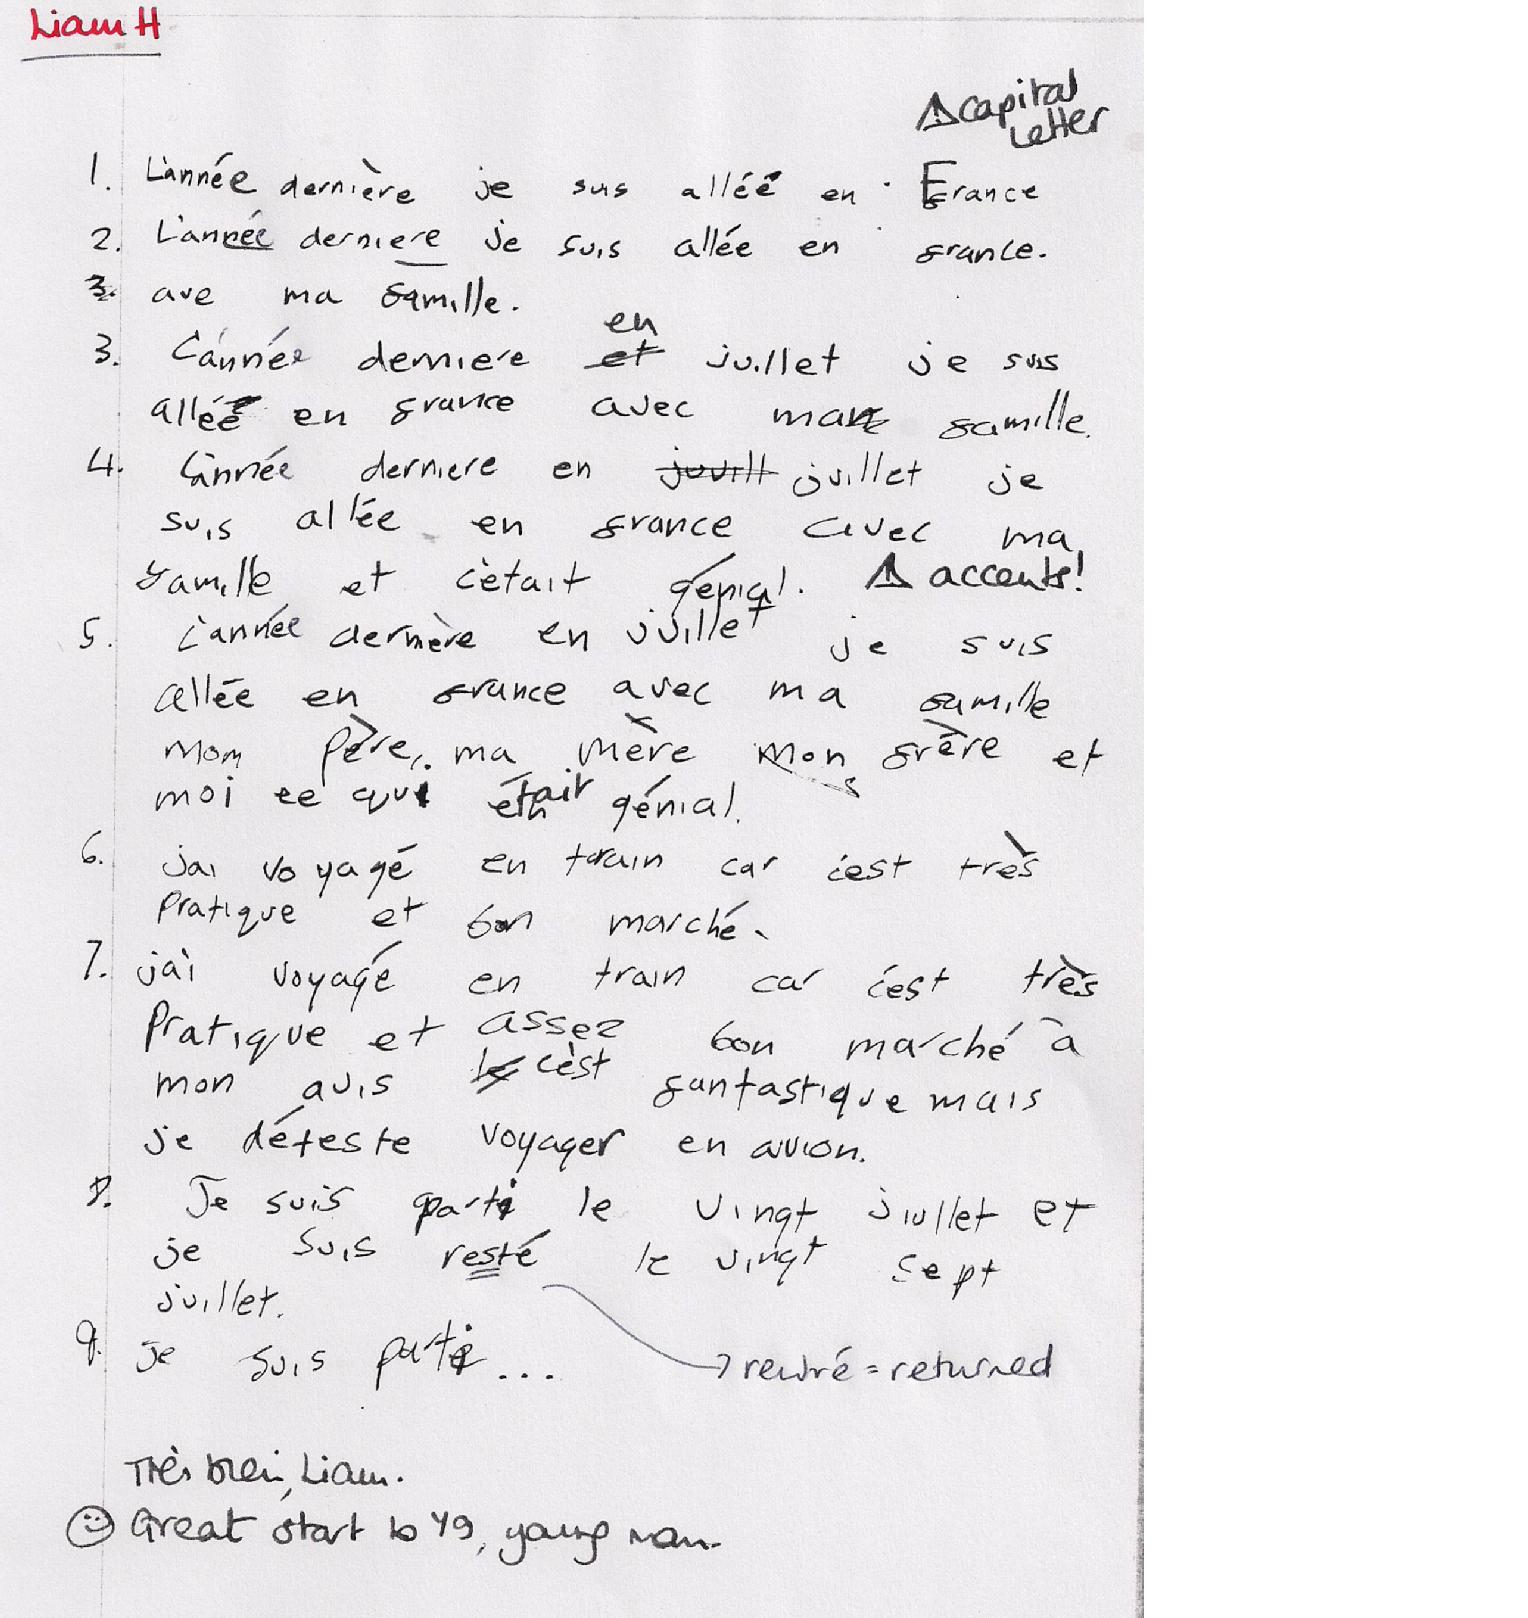 Liam H
⚠ capital
letter
1. L'année dernière je suis allée en France
2. L'année derniere je suis allée en france.
3. ave ma famille.
en
3. L'année derniere et juillet je suis
allée en france avec ma famille.
4. L'année derniere en juillet je
suis allée en france avec ma
famille et c'était génial. ⚠ accents!
5. L'année dernère en juillet je suis
allée en france avec ma famille
mon père, ma mère mon frère et
moi ce qui était génial.
6. j'ai voyagé en train car c'est très
pratique et bon marché.
7. j'ai voyagé en train car c'est très
Pratique et assez bon marché à
mon avis c'est fantastique mais
je déteste voyager en avion.
8. Je suis parti le vingt juillet et
je suis resté le vingt sept
juillet.
9. je suis parti ...
→ rentré = returned
Très bien, Liam.
☺ Great start to Y9, young man.